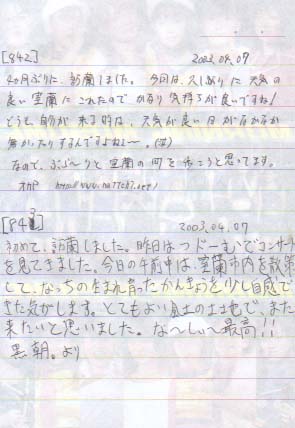 [842] 2003.04.07
4か月ぶりに、訪蘭しました。 今回は、久しぶりに天気の
良い室蘭にこれたので かなり気持ちが良いですね!
どうも自分が来る時は、天気が良い日がなかなか
無かったりするんですよねぇ〜。(笑)
なので、ぶら〜りと室蘭の町を歩こうと思ってます。
オカP http://www.natteh7.net/
[843] 2003.04.07
初めて、訪蘭しました。昨日はつどーむへでコンサート
を見てきました。今日の午前中は、室蘭市内を散策
して、なっちの生まれ育ったかんきょうを少し自感で
きた気がします。とてもよい風土の土地で、また
来たいと思いました。な〜しぃ〜最高!!
黒朝。より